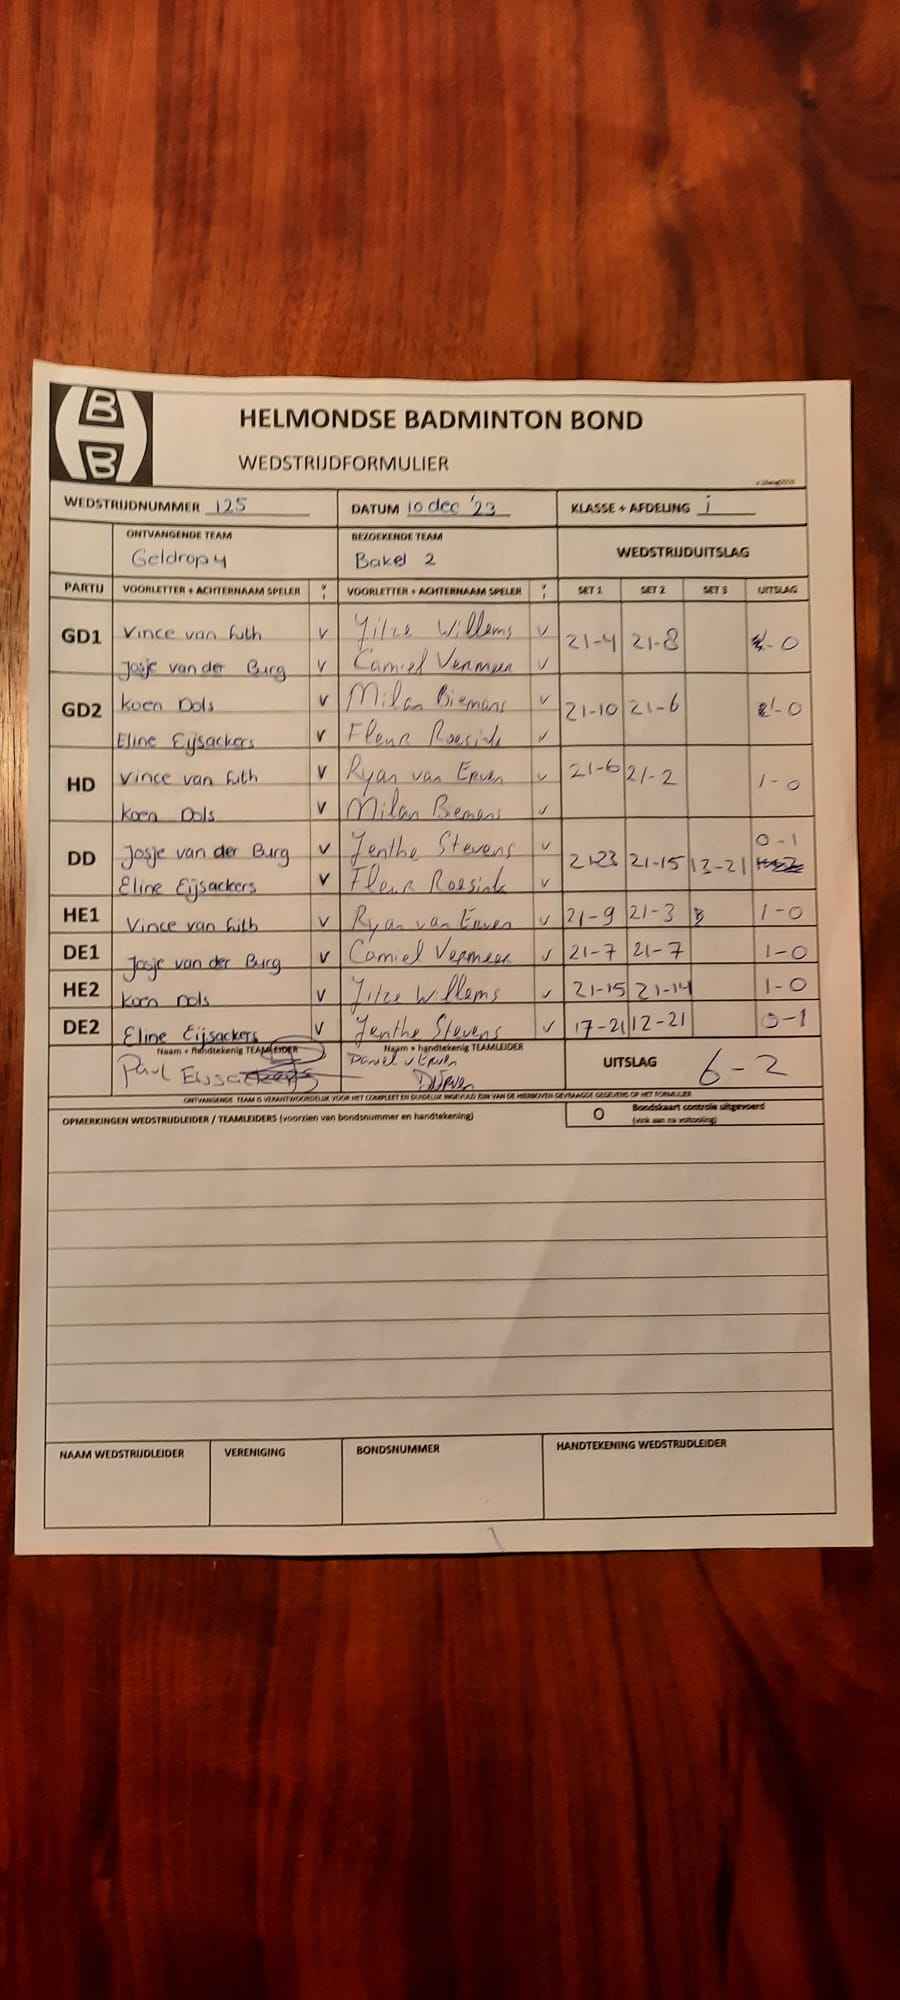 B
B
HELMONDSE BADMINTON BOND
WEDSTRIJDFORMULIER
WEDSTRIJDNUMMER 125 DATUM 10 dec '23 KLASSE + AFDELING j
ONTVANGENDE TEAM BEZOEKENDE TEAM WEDSTRIJDUITSLAG
Geldrop 4 Bakel 2
PARTIJ VOORLETTER + ACHTERNAAM SPELER VOORLETTER + ACHTERNAAM SPELER SET 1 SET 2 SET 3 UITSLAG
GD1 Vince van Luth V Willems V 21-4 21-8 - 0
Josje van der Burg V Camiel Vermeer V
GD2 Koen Dols V Milan Biemans V 21-10 21-6 1-0
Eline Eijsackers V Fleur Roesink V
HD Vince van Luth V Ryan van Erven V 21-6 21-2 1-0
Koen Dols V Milan Biemans V
DD Josje van der Burg V Jenthe Stevens V 21-23 21-15 13-21 0-1
Eline Eijsackers V Fleur Roesink V
HE1 Vince van Luth V Ryan van Erven V 21-9 21-3 1-0
DE1 Josje van der Burg V Camiel Vermeer V 21-7 21-7 1-0
HE2 Koen Dols V Willems V 21-15 21-14 1-0
DE2 Eline Eijsackers V Jenthe Stevens V 17-21 12-21 0-1
Naam + handtekenig TEAMLEIDER Naam + handtekenig TEAMLEIDER UITSLAG 6-2
Paul Eijsackers
ONTVANGENDE TEAM IS VERANTWOORDELIJK VOOR HET COMPLEET EN DUIDELIJK INGEVULD ZIJN VAN DE HIERBOVEN GEVRAAGDE GEGEVENS OP HET FORMULIER
OPMERKINGEN WEDSTRIJDLEIDER / TEAMLEIDERS (voorzien van bondsnummer en handtekening) O Bondskaart controle uitgevoerd
(vink aan na voltooiing)
NAAM WEDSTRIJDLEIDER VERENIGING BONDSNUMMER HANDTEKENING WEDSTRIJDLEIDER